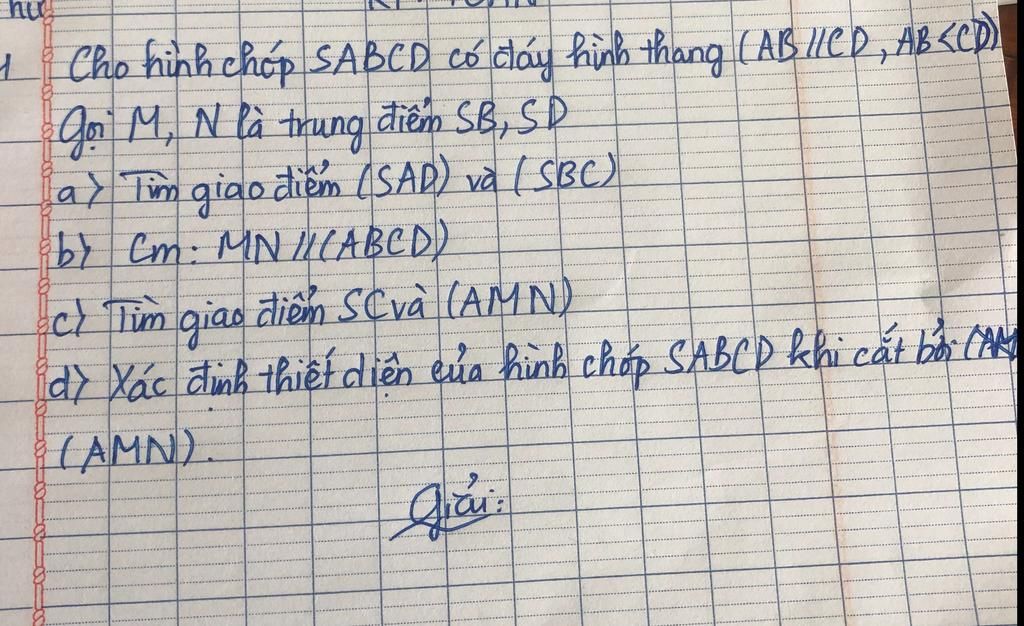 Cho hình chóp SABCD có đáy hình thang (AB//CD, AB<CD)
gọi M, N là trung điểm SB, SD
a> Tìm giao điểm (SAD) và (SBC)
b> Cm: MN//(ABCD)
c> Tìm giao điểm SC và (AMN)
d> Xác định thiết diện của hình chóp SABCD khi cắt bởi
(AMN).
Giải: